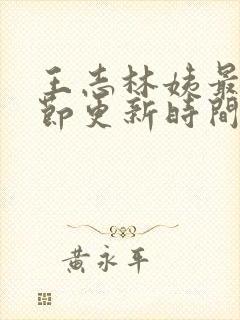 王志林姨最
節更新時間
黃永平